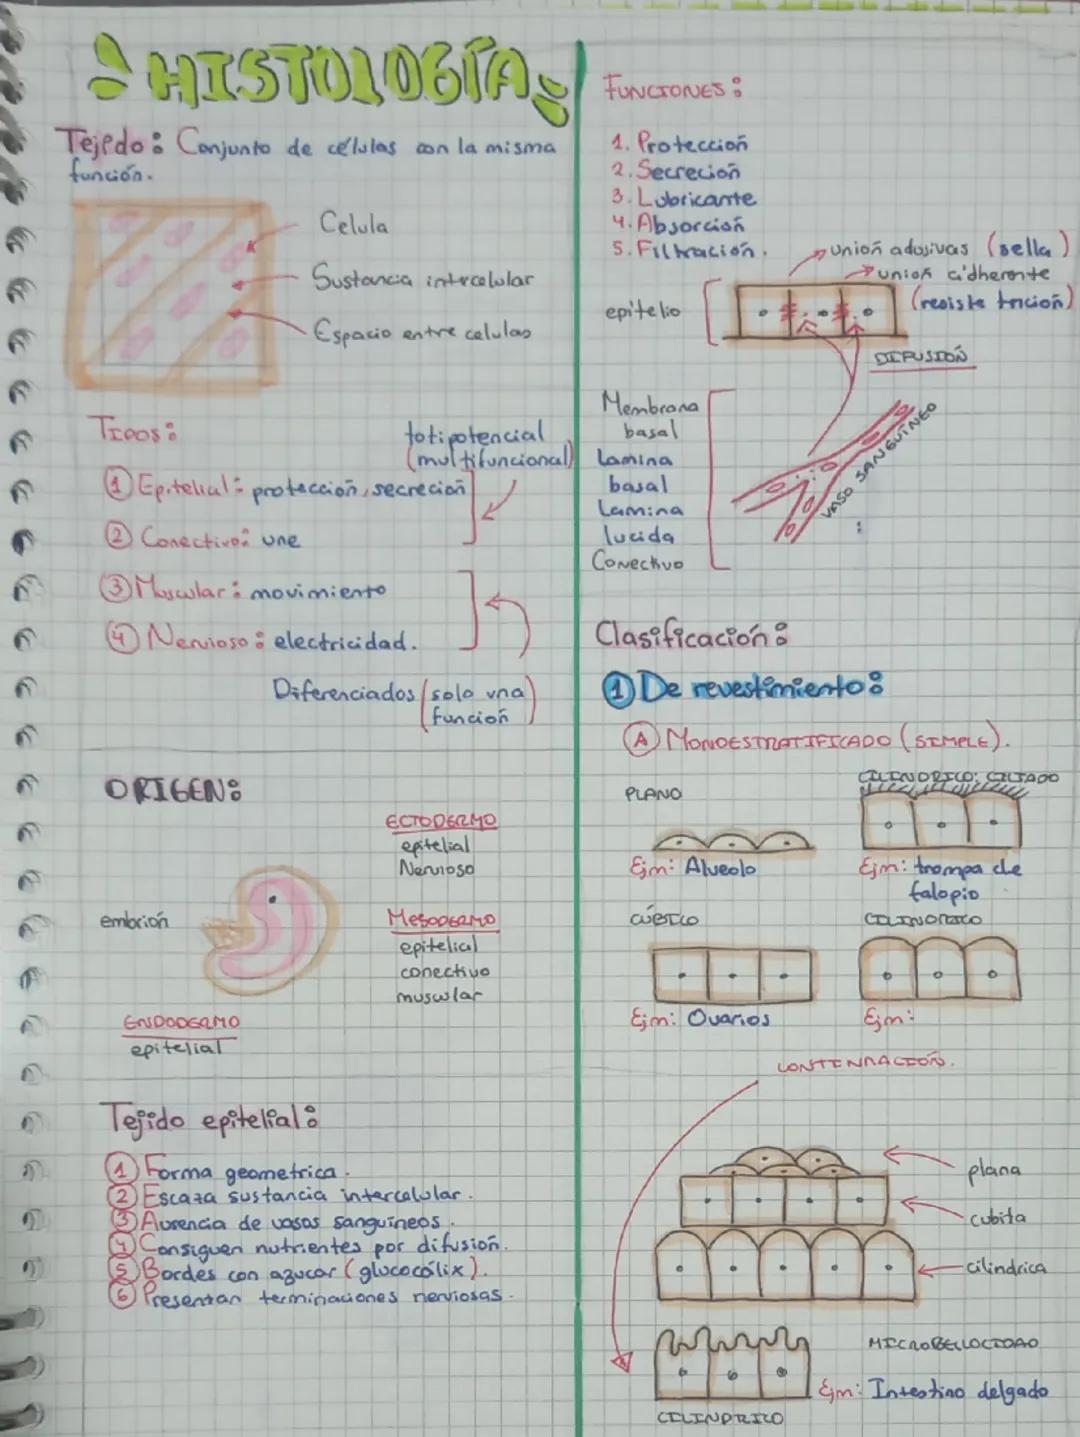 HISTOLOGÍA
Tejido: Conjunto de células con la misma
función.
Celula
Sustancia intercelular
Espacio entre celulas
TIPOS:
totipotencial
(multifuncional)
① Epitelial: protección, secreción
② Conectivo: une
③ Muscular: movimiento
④ Nervioso: electricidad.
Diferenciados (solo una
función)
ORIGEN:
ECTODERMO
epitelial
Nervioso
embrión
MESODERMO
epitelial
conectivo
muscular
ENDODERMO
epitelial
Tejido epitelial:
① Forma geometrica.
② Escaza sustancia intercelular.
③ Ausencia de vasos sanguíneos.
④ Consiguen nutrientes por difusión.
⑤ Bordes con azucar (glucocálix).
⑥ Presentan terminaciones nerviosas.
FUNCIONES:
1. Protección
2. Secreción
3. Lubricante
4. Absorción
5. Filtración.
unión adusivas (sella)
unión adherente
(resiste tnción)
epitelio
DIFUSIÓN
Membrana
basal
Lamina
basal
Lamina
lucida
Conectivo
VASO SANGUÍNEO
Clasificación:
① De revestimiento:
Ⓐ MONOESTRATIFICADO (SIMPLE).
PLANO
CILINDRICO: CILIADO
Ejm: Alveolo
Ejm: trompa de
falopio
CÚBICO
CILINDRICO
Ejm: Ovarios
Ejm:
CONTINUACIÓN.
plana
cubita
cilindrica
MICROBELLOCIDAD
Ejm: Intestino delgado
CILINDRICO